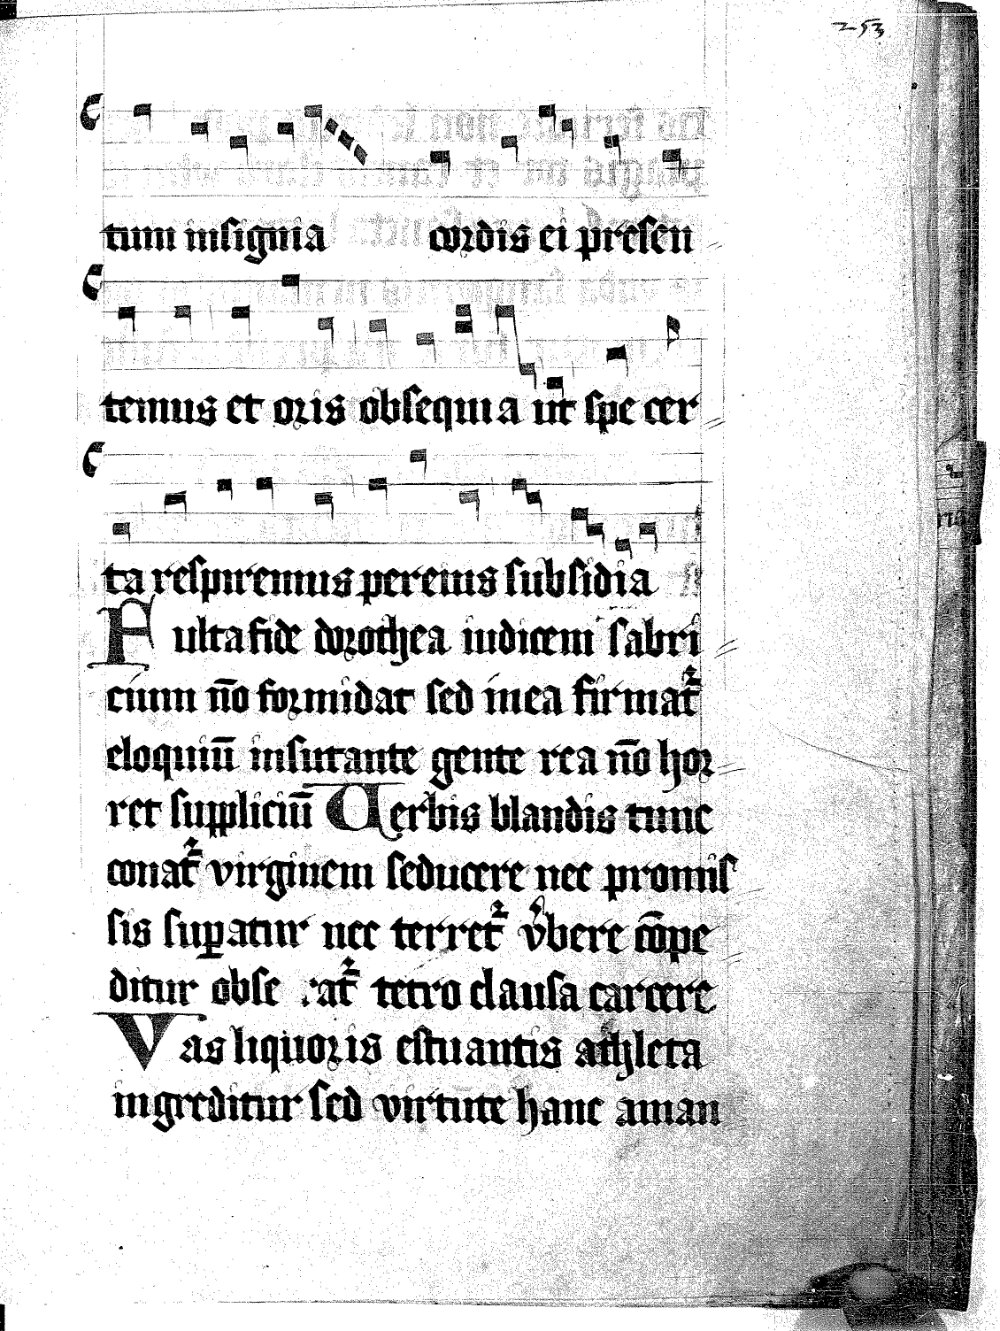 253
tum insignia cordis ei presen
temus et oris obsequia ut spe cer
ta respiremus per eius subsidia
Fulta fide dorothea iudicem fabri
cium nō formidat sed in ea firmat᷑
eloquiū insultante gente rea nō hor
ret suppliciū Uerbis blandis tunc
conat᷑ virginem seducere nec promis
sis suꝑatur nec terret᷑ v̓bere cōpe
ditur obse rat᷑ tetro clausa carcere
Vas liquoris estuantis athleta
ingreditur sed virtute hanc aman